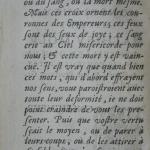 ou du sang, ou la mort mesme.
Mais ces croix ornent les cou-
ronnes des Empereurs; ces feux
sont des feux de joye; ce sang
crie au Ciel misericorde pour
nous; & cette mort y est vain-
cuë. Il est vray que quand bien
ces maux, qui d'abord effrayent
nos sens, vous paroistroient avec
toute leur deformité, je ne doit
point craindre de vous les pre-
senter. Puis que vostre vertu
sçait le moyen, ou de parer à
leurs coups, ou de les attendre a-